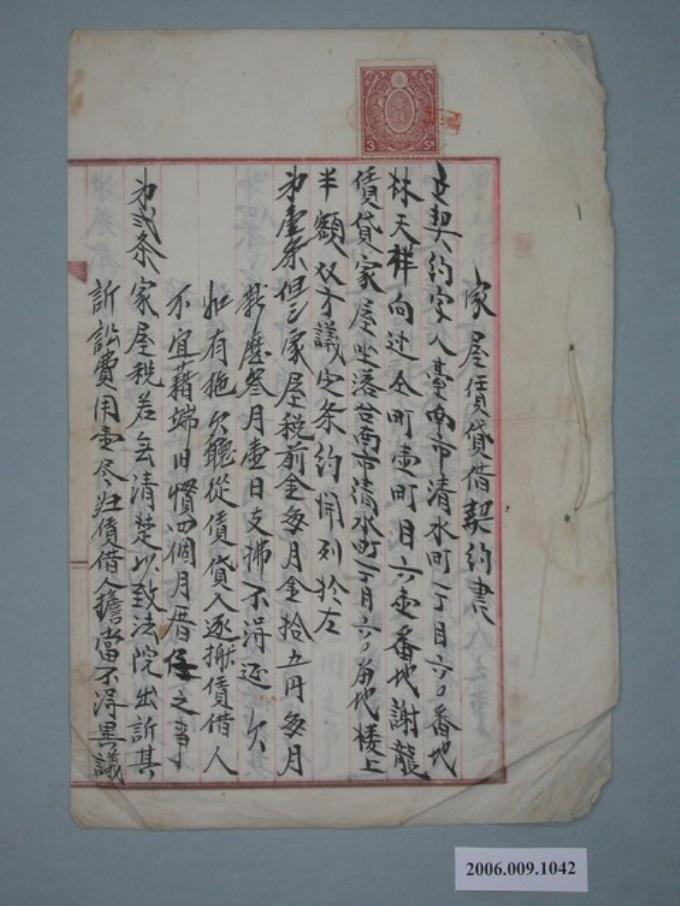 家屋賃貸借契約書
立契約字人臺南市清水町一丁目六〇番地
林天祥向过仝町壱町目六壱番地謝龍
賃貸家屋坐落台南市清水町一丁目六〇番地楼上
半額双方議定条約開列於左
第壹条但云家屋税前金每月金拾五円每月
新歷叁月壹日支拂不淂延欠
如有拖欠聽從賃貸人逐搬賃借人
不宜藉端旧慣四個月厝任之事
第弍条家屋税若無清楚以致法院出訴其
訴訟費用壱尽归賃借人擔當不淂異議
3 Sn
2006.009.1042